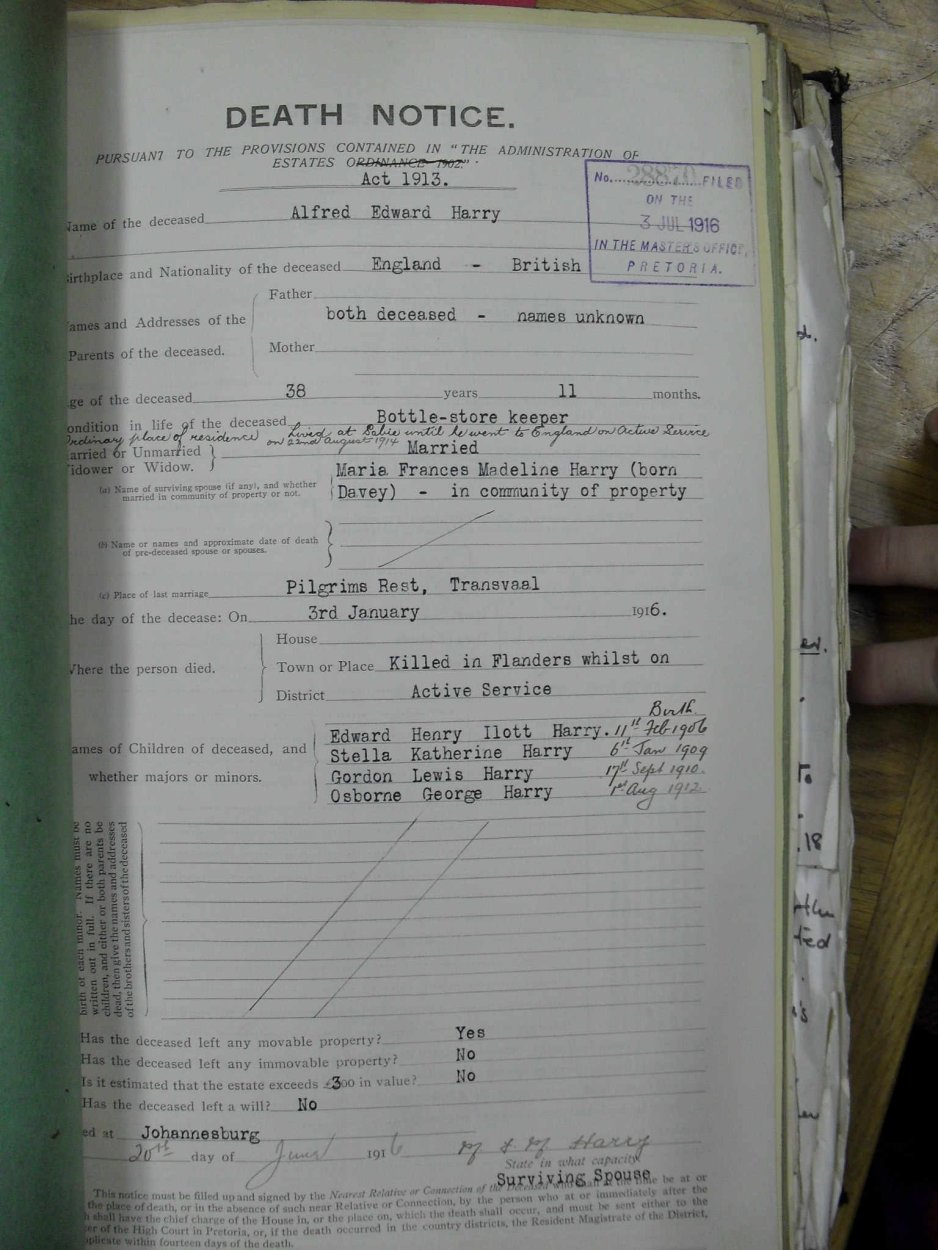 DEATH NOTICE.
PURSUANT TO THE PROVISIONS CONTAINED IN "THE ADMINISTRATION OF
ESTATES ORDINANCE 1902."
Act 1913.
No. 28870 FILED
ON THE
3 JUL 1916
IN THE MASTER'S OFFICE,
PRETORIA.
Name of the deceased Alfred Edward Harry
Birthplace and Nationality of the deceased England - British
Father
ames and Addresses of the both deceased - names unknown
Parents of the deceased. Mother
ge of the deceased 38 years 11 months.
ondition in life of the deceased Bottle-store keeper
Ordinary place of residence Lived at Sabie until he went to England on Active Service
on 22nd August 1914
arried or Unmarried Married
idower or Widow.
(a) Name of surviving spouse (if any), and whether
married in community of property or not.
Maria Frances Madeline Harry (born
Davey) - in community of property
(b) Name or names and approximate date of death
of pre-deceased spouse or spouses.
(c) Place of last marriage Pilgrims Rest, Transvaal
he day of the decease: On 3rd January 1916.
House
Where the person died. Town or Place Killed in Flanders whilst on
District Active Service
Birth
Edward Henry Ilott Harry. 11th Feb 1906
ames of Children of deceased, and Stella Katherine Harry 6th Jan 1909
whether majors or minors. Gordon Lewis Harry 17th Sept 1910.
Osborne George Harry 1st Aug 1912
birth of each minor. Names must be
written out in full. If there are no
children, and either or both parents be
dead, then give the names and addresses
of the brothers and sisters of the deceased
Has the deceased left any movable property? Yes
Has the deceased left any immovable property? No
Is it estimated that the estate exceeds £300 in value? No
Has the deceased left a will? No
ed at Johannesburg
20th day of June 1916 M F M Harry
State in what capacity
Surviving Spouse
This notice must be filled up and signed by the Nearest Relative or Connection of the be at or
the place of death, or in the absence of such near Relative or Connection, by the person who at or immediately after the
h shall have the chief charge of the House in, or the place on, which the death shall occur, and must be sent either to the
ter of the High Court in Pretoria, or, if the death occurred in the country districts, the Resident Magistrate of the District,
uplicate within fourteen days of the death.